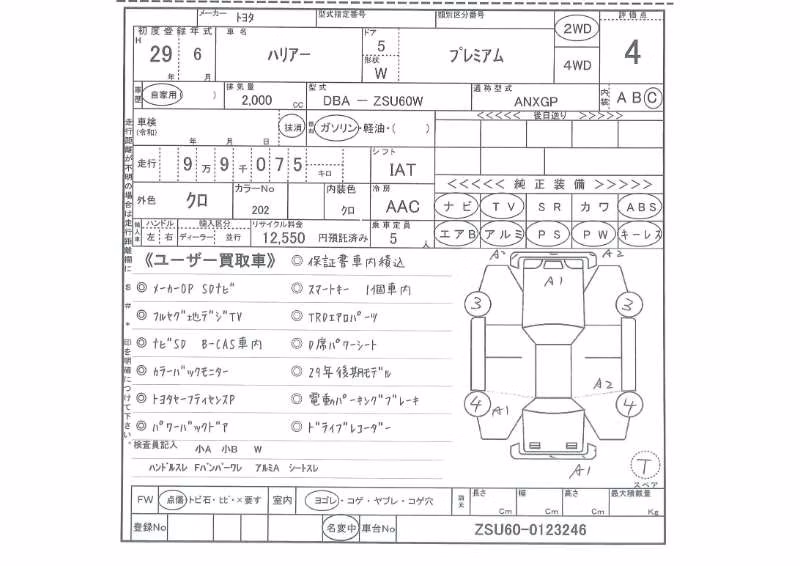 メーカー トヨタ 型式指定番号 類別区分番号
2WD 4WD
評価点 4
初度登録年式 H 29 年 6 月
車名 ハリアー
ドア 5 形状 W
プレミアム
車歴 自家用 ( )
排気量 2,000 CC
型式 DBA － ZSU60W
通称型式 ANXGP
内装 A B C
車検 (令和) 年 月 日 抹済
燃料 ガソリン・軽油・( )
<<<<< 後日送り >>>>>
走行 9 万 9 千 0 7 5 キロ
シフト IAT
外色 クロ
カラーNo 202
内装色 クロ
冷房 AAC
<<<<< 純正装備 >>>>>
ナビ TV SR カワ ABS
エアB アルミ PS PW キーレス
輸入車 ハンドル 左 右 輸入区分 ディーラー 並行
リサイクル料金 12,550 円預託済み
乗車定員 5 人
走行距離が不明の場合は走行距離欄に $ # * 印を明確につけて下さい。
《ユーザー買取車》 ◎ 保証書車内積込
◎ メーカーOP SDナビ ◎ スマートキー 1個車内
◎ フルセグ地デジTV ◎ TRDエアロパーツ
◎ ナビSD B-CAS車内 ◎ D席パワーシート
◎ カラーバックモニター ◎ 29年後期モデル
◎ トヨタセーフティセンスP ◎ 電動パーキングブレーキ
◎ パワーバックドア ◎ ドライブレコーダー
検査員記入 小A 小B W
ハンドルスレ Fバンパーワレ アルミA シートスレ
A2
A1
3 3
A2
4 A1 4
A1
T
スペア
FW 点傷・トビ石・ヒビ・×要す 室内 ヨゴレ・コゲ・ヤブレ・コゲ穴
長さ Cm 幅 Cm 高さ Cm 最大積載量 Kg
登録No 名変中 車台No ZSU60-0123246